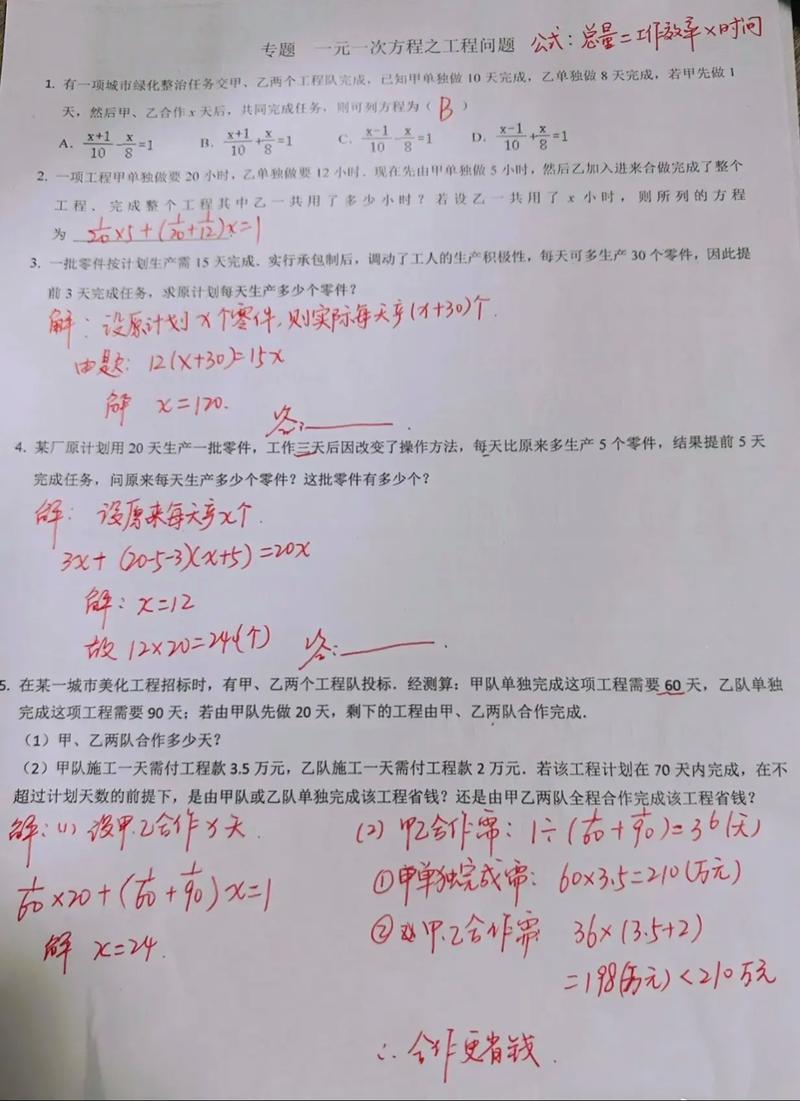 专题 一元一次方程之工程问题 公式：总量=工作效率×时间
1. 有一项城市绿化整治任务交甲、乙两个工程队完成，已知甲单独做 10 天完成，乙单独做 8 天完成，若甲先做 1
天，然后甲、乙合作 x 天后，共同完成任务，则可列方程为（ B ）
A. (x+1)/10 - x/8 =1 B. (x+1)/10 + x/8 =1 C. (x-1)/10 - x/8 =1 D. (x-1)/10 + x/8 =1
2. 一项工程甲单独做要 20 小时，乙单独做要 12 小时. 现在先由甲单独做 5 小时，然后乙加入进来合做完成了整个
工程. 完成整个工程其中乙一共用了多少小时？若设乙一共用了 x 小时，则所列的方程
为 1/20 ×5+(1/20+1/12)x=1
3. 一批零件按计划生产需 15 天完成. 实行承包制后，调动了工人的生产积极性，每天可多生产 30 个零件，因此提
前 3 天完成任务，求原计划每天生产多少个零件？
解：设原计划 x 个零件，则实际每天产(x+30)个.
由题：12(x+30)=15x
解 x=120.
答：______.
4. 某厂原计划用 20 天生产一批零件，工作三天后因改变了操作方法，每天比原来多生产 5 个零件，结果提前 5 天
完成任务，问原来每天生产多少个零件？这批零件有多少个？
解：设原来每天产x个.
3x+(20-5-3)(x+5)=20x
解：x=12
故 12×20=240(个) 答：______.
5. 在某一城市美化工程招标时，有甲、乙两个工程队投标. 经测算：甲队单独完成这项工程需要 60 天，乙队单独
完成这项工程需要 90 天；若由甲队先做 20 天，剩下的工程由甲、乙两队合作完成.
（1）甲、乙两队合作多少天？
（2）甲队施工一天需付工程款 3.5 万元，乙队施工一天需付工程款 2 万元. 若该工程计划在 70 天内完成，在不
超过计划天数的前提下，是由甲队或乙队单独完成该工程省钱？还是由甲乙两队全程合作完成该工程省钱？
解：(1) 设甲.乙合作x天.
1/60 ×20+(1/60+1/90)x=1
解 x=24.
(2) 甲乙合作需：1÷(1/60+1/90)=36(天)
①甲单独完成需：60×3.5=210(万元)
②甲.乙合作需 36×(3.5+2)
=198(万元)<210万元
∴合作更省钱.